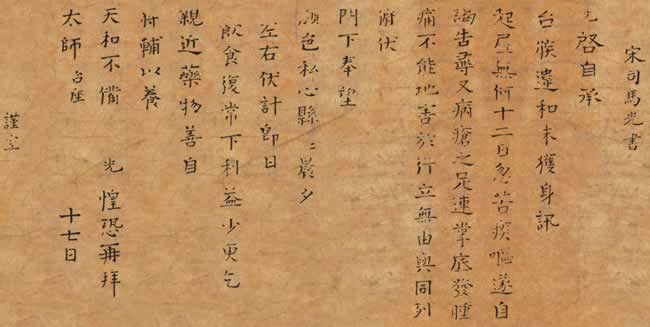 宋司馬光書
光啓自承
台候違和未獲身訊
起居無何十二日忽苦痰嘔遂自
謁告尋又病瘡之足連掌底發腫
痛不能地害於行立無由與同列
俯伏
門下奉望
顏色私心縣〻晨夕
左右伏計即日
飲食復常下利益少更乞
親近藥物善自
輔以養
天和不備 光 惶恐再拜
太師 台座 十七日
謹空